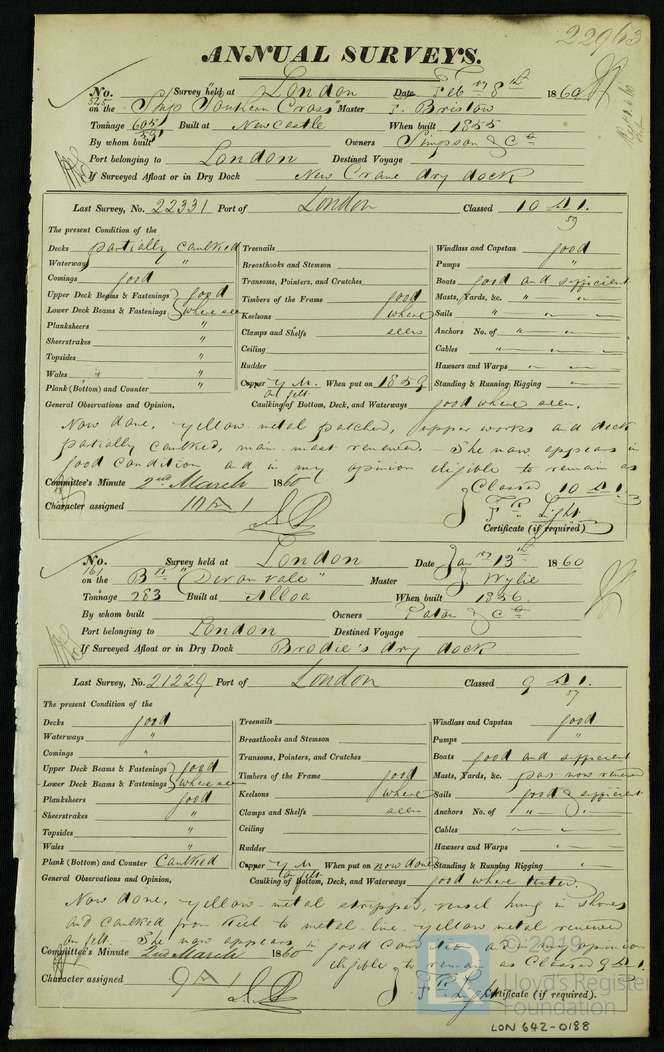 22963
ANNUAL SURVEYS.
No. 525 Survey held at London Date Feby 8th 1860
on the Ship "Southern Cross" Master F. Bristow
Tonnage 605 Built at Newcastle When built 1855
By whom built Owners Simpson & Co
Port belonging to London Destined Voyage
If Surveyed Afloat or in Dry Dock New Crane dry dock
Last Survey, No. 22331 Port of London Classed 10 A 1. 59
The present Condition of the
Decks partially caulked Treenails Windlass and Capstan good
Waterways " Breasthooks and Stemson Pumps "
Comings good Transoms, Pointers, and Crutches Boats good and sufficient
Upper Deck Beams & Fastenings good Timbers of the Frame good Masts, Yards, &c. " " "
Lower Deck Beams & Fastenings where seen Keelsons where Sails " " "
Planksheers " Clamps and Shelfs seen Anchors No. of " " "
Sheerstrakes " Ceiling Cables " " "
Topsides " Rudder Hawsers and Warps " " "
Wales " Copper Y M. on felt When put on 1859 Standing & Running Rigging
Plank (Bottom) and Counter "
General Observations and Opinion, Caulking of Bottom, Deck, and Waterways good where seen.
Now done, yellow metal patched, upper works and deck
partially caulked, main-mast renewed. - She now appears in
good condition and in my opinion eligible to remain as
Committee's Minute 2nd March 1860 Classed 10 A 1.
Character assigned 10 A 1 Fk. Light
Certificate (if required)
No. 161 Survey held at London Date Jany 13th 1860
on the Bn "Devonvale" Master J. Wylie
Tonnage 283 Built at Alloa When built 1856
By whom built Owners Paton & Co
Port belonging to London Destined Voyage
If Surveyed Afloat or in Dry Dock Brodie's dry dock
Last Survey, No. 21229 Port of London Classed 9 A 1. 57
The present Condition of the
Decks good Treenails Windlass and Capstan good
Waterways " Breasthooks and Stemson Pumps "
Comings " Transoms, Pointers, and Crutches Boats good and sufficient
Upper Deck Beams & Fastenings good Timbers of the Frame good Masts, Yards, &c. now renewed
Lower Deck Beams & Fastenings where seen Keelsons where Sails good & sufficient
Planksheers good Clamps and Shelfs seen Anchors No. of " " "
Sheerstrakes " Ceiling Cables " " "
Topsides " Rudder Hawsers and Warps " " "
Wales " Copper Y M on felt When put on now done Standing & Running Rigging " "
Plank (Bottom) and Counter Caulked
General Observations and Opinion, Caulking of Bottom, Deck, and Waterways good where tested.
Now done, yellow metal stripped, vessel hung in slores
and caulked from keel to metal-line. yellow metal renewed
on felt. She now appears in good condition and in my opinion
Committee's Minute 2nd March 1860 eligible to remain as Classed 9 A 1.
Character assigned 9 A 1 Fk. Light
Certificate (if required).
© 2019
Lloyd's Register
Foundation
LON 642-0188